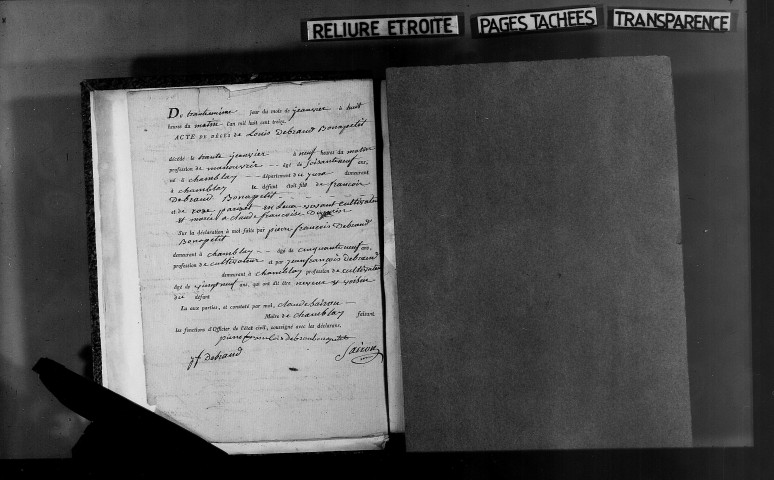 RELIURE ETROITE PAGES TACHÉES TRANSPARENCE
Du trentunième jour du mois de janvier à huit
heures du matin l'an mil huit cent treize
ACTE DE DÉCÈS de Louis Debraud Bonapetit
décédé le trente janvier à neuf heures du matin
profession de manouvrier âgé de soixanteneuf ans,
né à chamblay département du jura demeurant
à chamblay le défunt était fils de françois
Debraud Bonapetit
et de roze en leur vivant cultivateur
et marié à claude françoise
Sur la déclaration à moi faite par pierre françois Debraud
Bonapetit
demeurant à chamblay âgé de cinquanteneuf ans,
profession de cultivateur et par jeanfrançois debraud
demeurant à chamblay profession de cultivateur
âgé de vingtneuf ans, qui ont dit être neveux et voisin
du défunt
Lu aux parties, et constaté par moi, claude Sairon
Maire de chamblay faisant
les fonctions d'Officier de l'état civil, soussigné avec les déclarans,
pierre francois debraud bonapetit
jf debraud Sairon